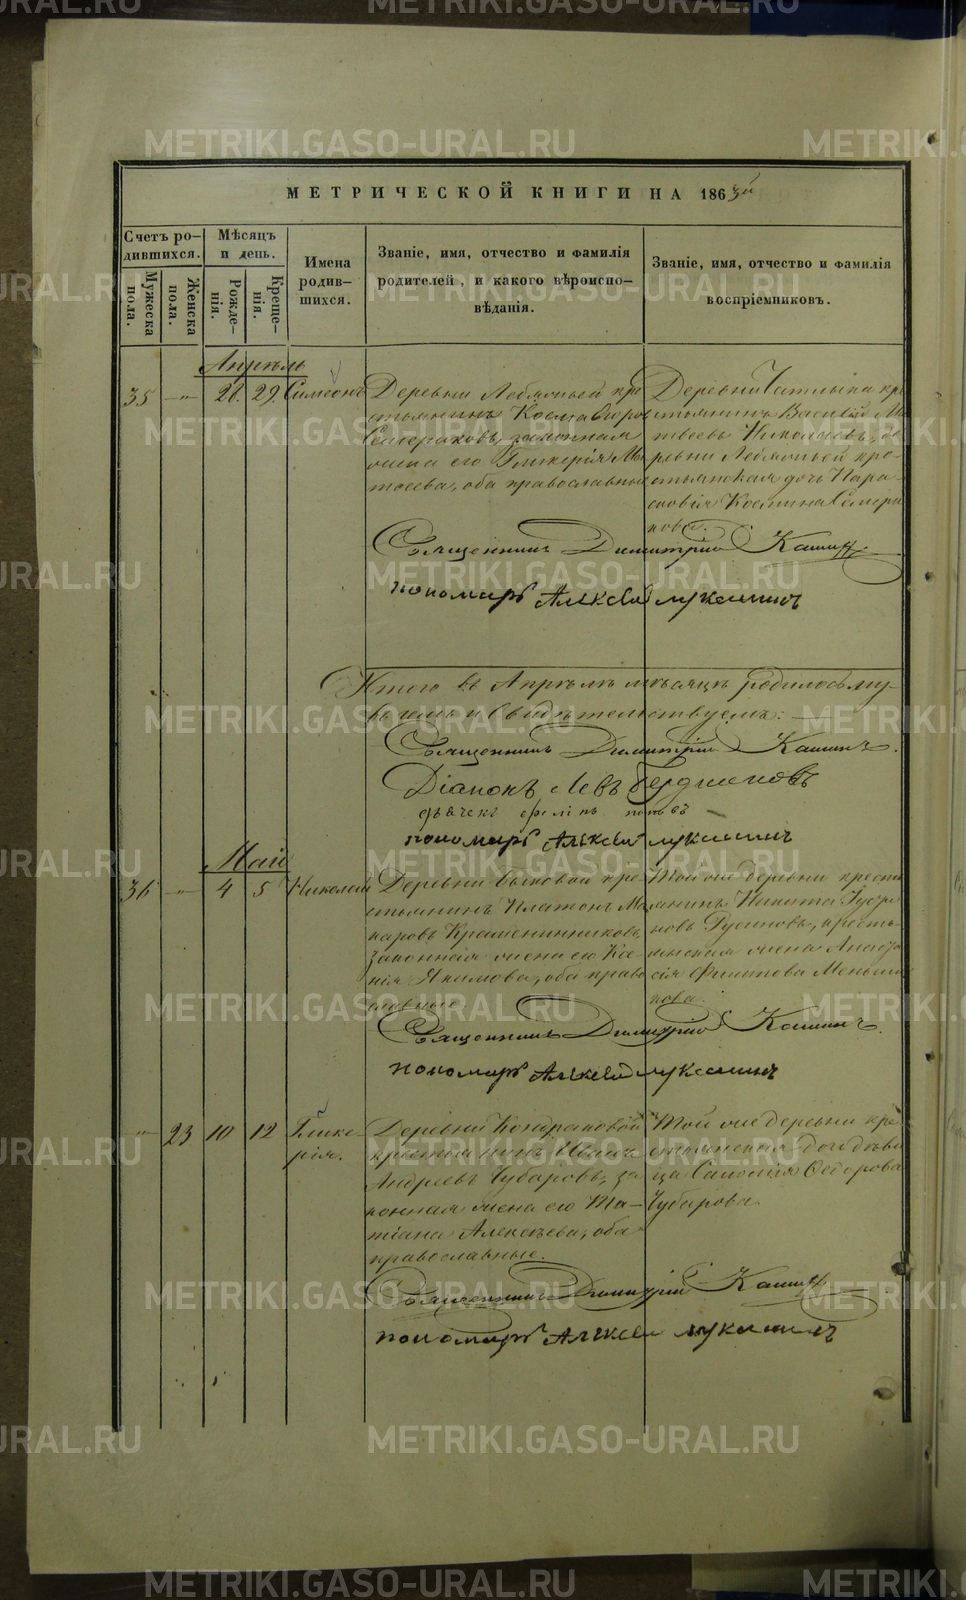 МЕТРИЧЕСКОЙ КНИГИ НА 1863й
Счетъ ро-
дившихся.
Мѣсяцъ
и день.
Имена
родив-
шихся.
Званіе, имя, отчество и фамилія
родителей, и какого вѣроиспо-
вѣданія.
Званіе, имя, отчество и фамилія
воспріемниковъ.
Мужеска
пола.
Женска
пола.
Рожде-
нія.
Креще-
нія.
Апрѣль
35 -"- 28. 29. Симеонъ
Деревни Лебяжьей кре
стьянинъ Косма
законная
жена его Гликерія Ма
тѳеева, оба православные
Деревни кре
стьянинъ Василій Ма
твеевъ Николаевъ, де
ревни Лебяжьей кре-
стьянская дочь Пара
сковія Космина
Священникъ Димитрій Кашинъ.
пономарь Алексей Лукашинъ
Итого въ Апрѣлѣ мѣсяцѣ родилось
свидѣтельствуемъ:
Священникъ Димитрій Кашинъ.
Діаконъ Левъ
дьячекъ поповъ
пономарь Алексей Лукашинъ
Май
36 -"- 4 5 Николай
Деревни Быковой кре
стьянинъ Платонъ Ма
каровъ Крашенинниковъ,
законная жена его Ксе-
нія Якимова, оба право
славные
Той же деревни крестья
нинъ Никита
Русиновъ, кресть-
янская жена Анаста
сія Филипова Меньши
кова.
Священникъ Димитрій Кашинъ.
пономарь Алексей Лукашинъ
-"- 23 10 12 Глике-
рія.
Деревни Кондраковой
крестьянинъ Иванъ
Андреевъ Чубаровъ, за
конная жена его Та-
тіана Алексѣева, оба
православные.
Той же деревни кре-
стьянская дочь дѣви
ца Саломія Ѳедорова
Чубарова.
Священникъ Димитрій Кашинъ
пономарь Алексей Лукашинъ
METRIKI.GASO-URAL.RU